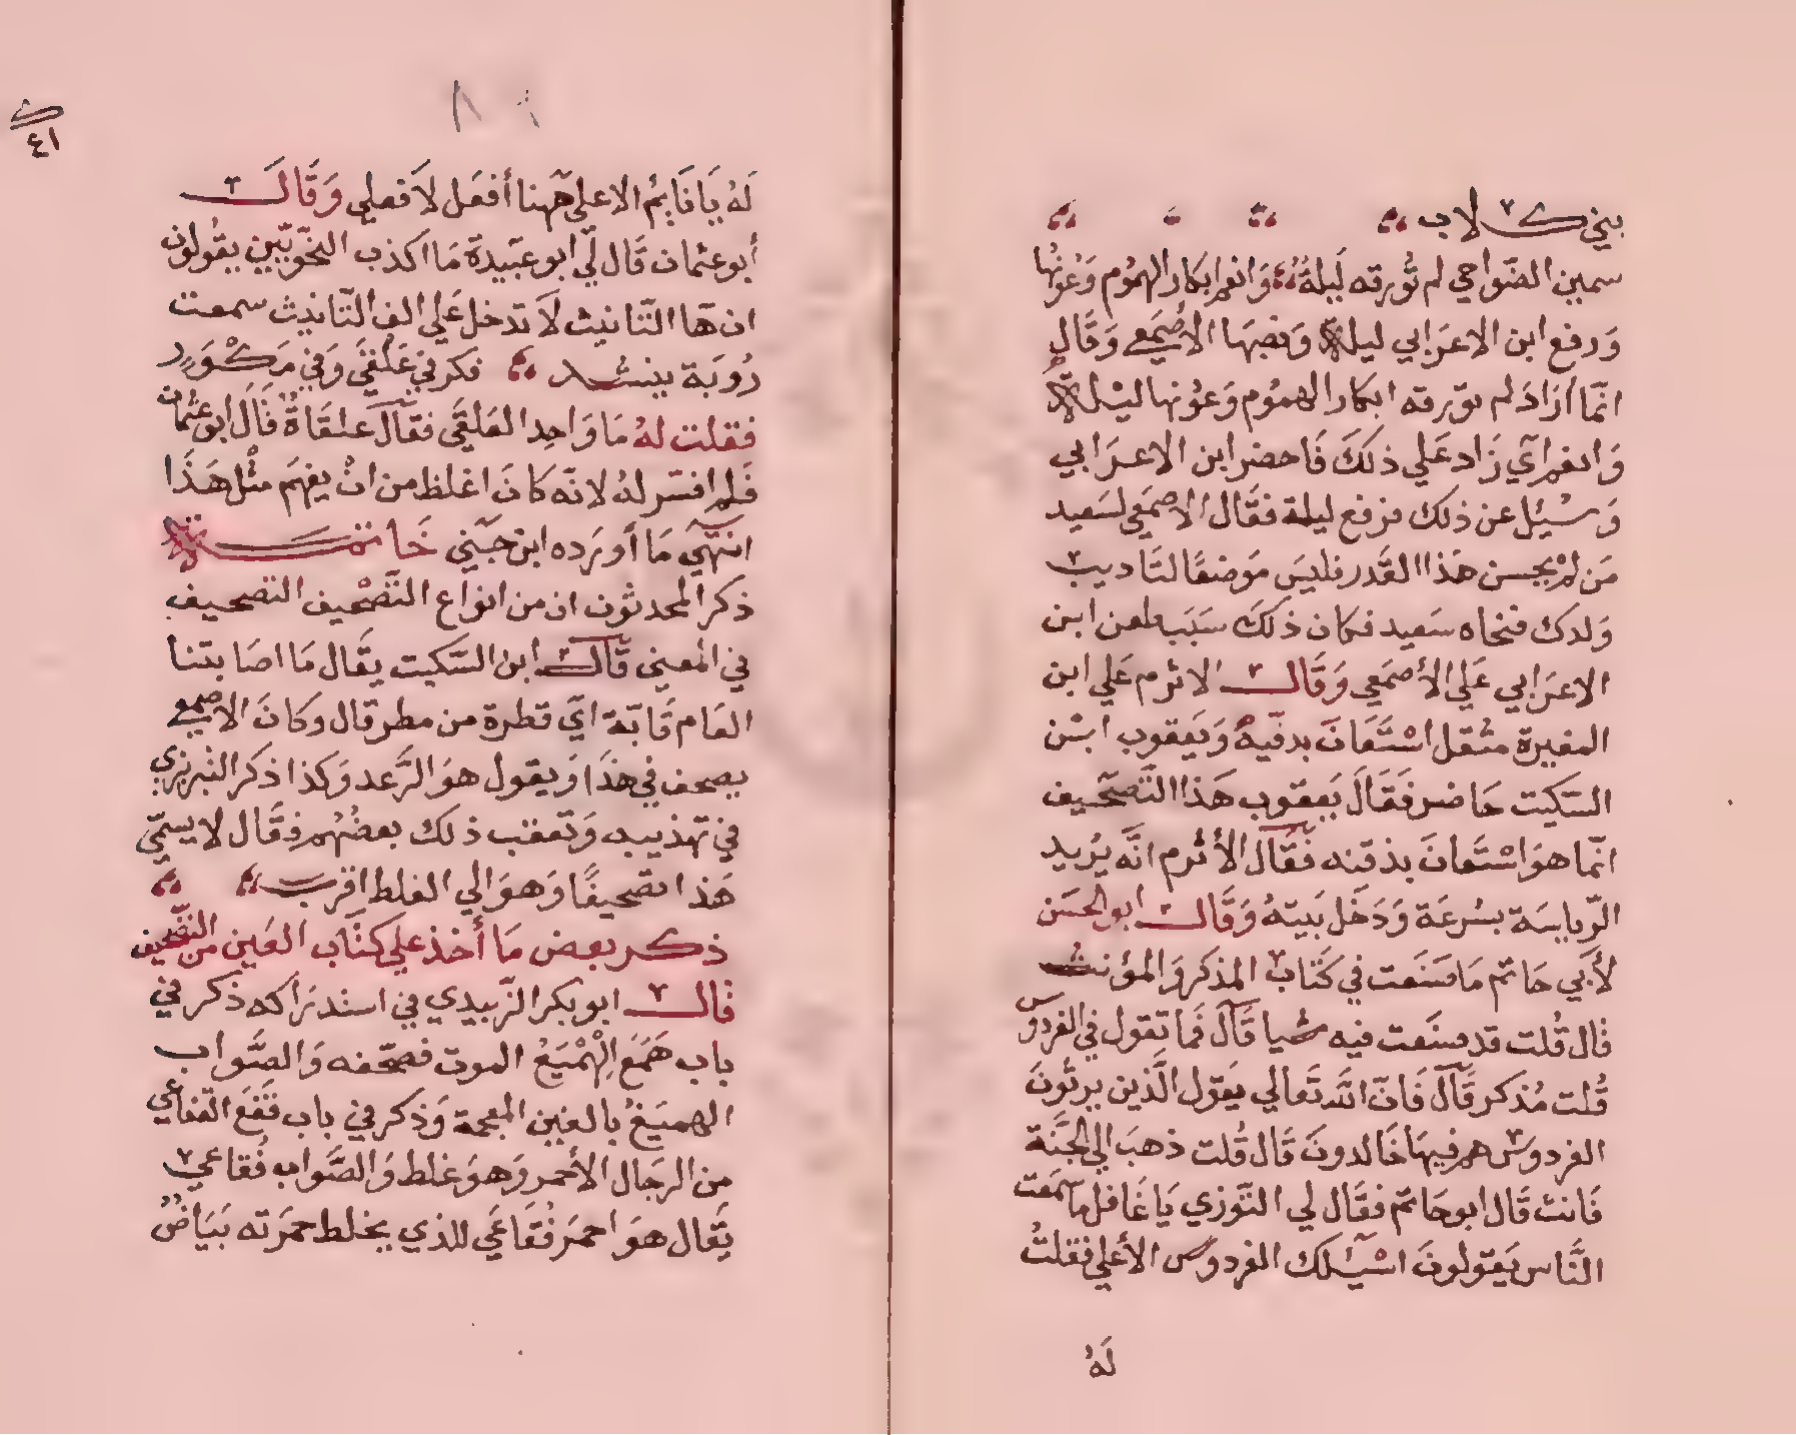 بني كلاب
سمين الضواحي لم تُورقه لَيلةُ وَانعم ابكار الهمُوم وَعُونُها
وَرفع ابن الاعرَابي ليلة وَنصبهَا الاصمَعي وَقَال
انّما ارَادَ لم تورّقه ابكار الهمُوم وَعوُنها ليْلة
وَانعم اي زَاد عَلي ذلكَ فَاحضر ابن الاعرَابي
وَسُئِل عن ذلك فرفع ليلة فقَال الاصمَعي لسَعيد
مَن لمْ يحسن هَذا القَدر فليسَ مَوضعًا لتَاديب
وَلدك فنحاه سَعيد فكان ذلكَ سَبَب طعن ابن
الاعرَابي عَلي الأصمَعي وَقَال الاثرم عَلي ابن
المغيرة مثقل اسْتَعَانَ بدفّيهُ وَيَعقوب ابْن
السّكيت حَاضر فَقَالَ يَعقوب هَذا التَّصحيف
انّما هوَ اسْتَعانَ بذقنه فقَال الأثرم انَّه يُريد
الرّياسَة بسُرعَة وَدَخَل بَيتهُ وَقَال ابو الحسَن
لأبَي حَاتم مَا صَنَعت في كَتَاب المذكر وَالمؤنث
قال قُلت قد صنَعت فيه شيا قَالَ فَما تقول في الفردوس
قُلت مُذكر قَالَ فَانّ اللّه تَعَالي يَقول الَّذين يرثُونَ
الفردوسَ هم فيهَا خَالدونَ قَال قُلت ذهبَ الي الجَنَّة
فَانث قَال ابو حَاتم فقَال لي التّوزي يَا غَافل مَا سَمَعت
النَّاس يَقولونَ اسْئلك الفردوس الأعلي فقلتُ
لَهُ
ك
٤١
لَهُ يَا نَايمُ الاعلي هَهنا أفعَل لاَ فعلي وَقَال
أبو عثمان قَال لي ابو عبَيدة مَا اكذب النحَويّين يقُولون
ان هَا التَّانيث لاَ تدخل عَلي الف التَّانيث سمعت
رُوبَة ينشد فكر في عَلقَي وَفي مَكْوَرٍ
فقلت لهُ مَا وَاحِد العَلقَي فقَالَ علقَاةٌ قَالَ ابو عثمان
فَلم افسّر لهُ لانّه كَانَ اغلظ من انْ يفهَم مثْل هَذَا
انتهيَ مَا أورَده ابن جَنّي خَاتمة
ذكر المحدثون ان من انواع التَّصْحيف التصحيف
في المعني قَالَ ابن السّكيت يقَال مَا اصَابتنا
العَام قَابّة ايَ قطرة من مطر قال وكانَ الاصمعي
يصحف في هَذَا وَيقول هوَ الرَّعد وَكذا ذكر التبريزي
في تهذيبه وَتعقب ذلك بعضُهُم فقَال لا يسمّي
هَذا تصحيفًا وَهوَ الي الغلط اقرب
ذكر بعض مَا أخذ علي كتَاب العَين من التصحيف
قَال ابو بكر الزّبيدي في استدرَاكه ذكر في
باب هَمَع الِهمْيَعُ الموت فصحّفه وَالصَّواب
الهميَغُ بالغين المعجمة وَذكر في باب قَفَعَ القفاعي
من الرجَال الأحمر وَهوَ غلط وَالصَّواب فُقاعي
يَقَال هوَ احمَر فُقَاعَي للذي يخلط حمرَته بَيَاضٌ